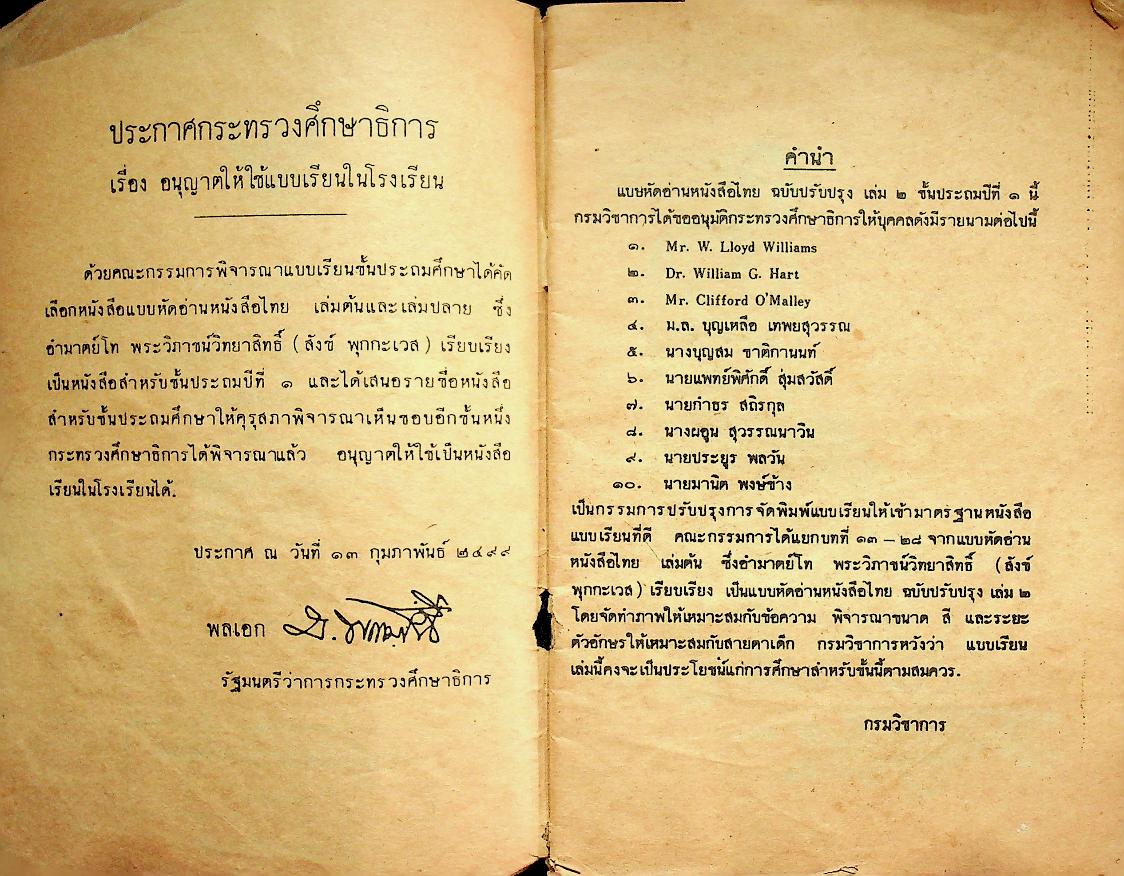 ประกาศกระทรวงศึกษาธิการ
เรื่อง อนุญาตให้ใช้แบบเรียนในโรงเรียน
ด้วยคณะกรรมการพิจารณาแบบเรียนชั้นประถมศึกษาได้คัด
เลือกหนังสือแบบหัดอ่านหนังสือไทย เล่มต้นและเล่มปลาย ซึ่ง
อำมาตย์โท พระวิภาชน์วิทยาสิทธิ์ (สังข์ พุกกะเวส) เรียบเรียง
เป็นหนังสือสำหรับชั้นประถมปีที่ ๑ และได้เสนอรายชื่อหนังสือ
สำหรับชั้นประถมศึกษาให้คุรุสภาพิจารณาเห็นชอบอีกชั้นหนึ่ง
กระทรวงศึกษาธิการได้พิจารณาแล้ว อนุญาตให้ใช้เป็นหนังสือ
เรียนในโรงเรียนได้.
ประกาศ ณ วันที่ ๑๓ กุมภาพันธ์ ๒๔๙๙
พลเอก
รัฐมนตรีว่าการกระทรวงศึกษาธิการ
คำนำ
แบบหัดอ่านหนังสือไทย ฉบับปรับปรุง เล่ม ๒ ชั้นประถมปีที่ ๑ นี้
กรมวิชาการได้ขออนุมัติกระทรวงศึกษาธิการให้บุคคลดังมีรายนามต่อไปนี้
๑. Mr. W. Lloyd Williams
๒. Dr. William G. Hart
๓. Mr. Clifford O'Malley
๔. ม.ล. บุญเหลือ เทพยสุวรรณ
๕. นางบุญสม ชาติกานนท์
๖. นายแพทย์พิศักดิ์ สุ่มสวัสดิ์
๗. นายกำธร สถิรกุล
๘. นางผอูน สุวรรณนาวิน
๙. นายประยูร พลวัน
๑๐. นายมานิต พงษ์ช้าง
เป็นกรรมการปรับปรุงการจัดพิมพ์แบบเรียนให้เข้ามาตรฐานหนังสือ
แบบเรียนที่ดี คณะกรรมการได้แยกบทที่ ๑๓ – ๒๘ จากแบบหัดอ่าน
หนังสือไทย เล่มต้น ซึ่งอำมาตย์โท พระวิภาชน์วิทยาสิทธิ์ (สังข์
พุกกะเวส) เรียบเรียง เป็นแบบหัดอ่านหนังสือไทย ฉบับปรับปรุง เล่ม ๒
โดยจัดทำภาพให้เหมาะสมกับข้อความ พิจารณาขนาด สี และระยะ
ตัวอักษรให้เหมาะสมกับสายตาเด็ก กรมวิชาการหวังว่า แบบเรียน
เล่มนี้คงจะเป็นประโยชน์แก่การศึกษาสำหรับชั้นนี้ตามสมควร.
กรมวิชาการ